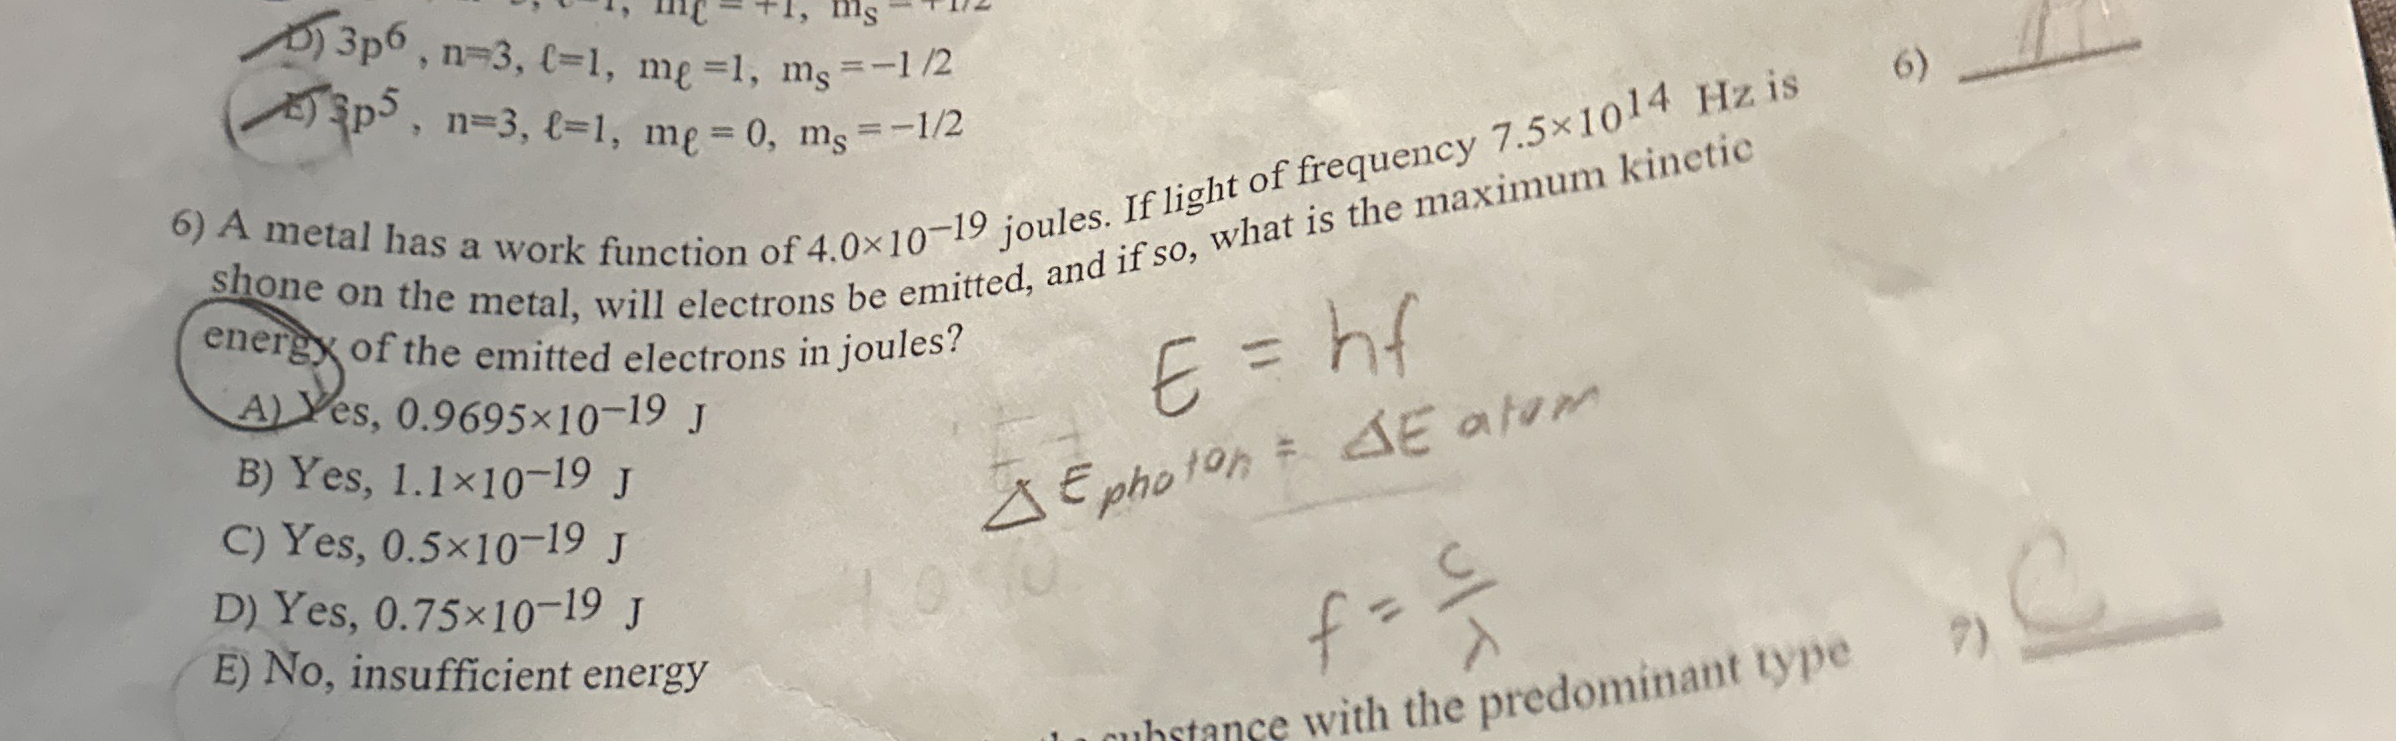 mℓ = +1, ms = +1/2
D) 3p⁶, n=3, ℓ=1, mℓ =1, ms =−1/2
E) 3p⁵, n=3, ℓ=1, mℓ = 0, ms =−1/2
6)
6) A metal has a work function of 4.0×10⁻¹⁹ joules. If light of frequency 7.5×10¹⁴ Hz is
shone on the metal, will electrons be emitted, and if so, what is the maximum kinetic
energy of the emitted electrons in joules?
A) Yes, 0.9695×10⁻¹⁹ J
B) Yes, 1.1×10⁻¹⁹ J
C) Yes, 0.5×10⁻¹⁹ J
D) Yes, 0.75×10⁻¹⁹ J
E) No, insufficient energy
E = hf
ΔE photon = ΔE atom
f = c/λ
7) C
substance with the predominant type